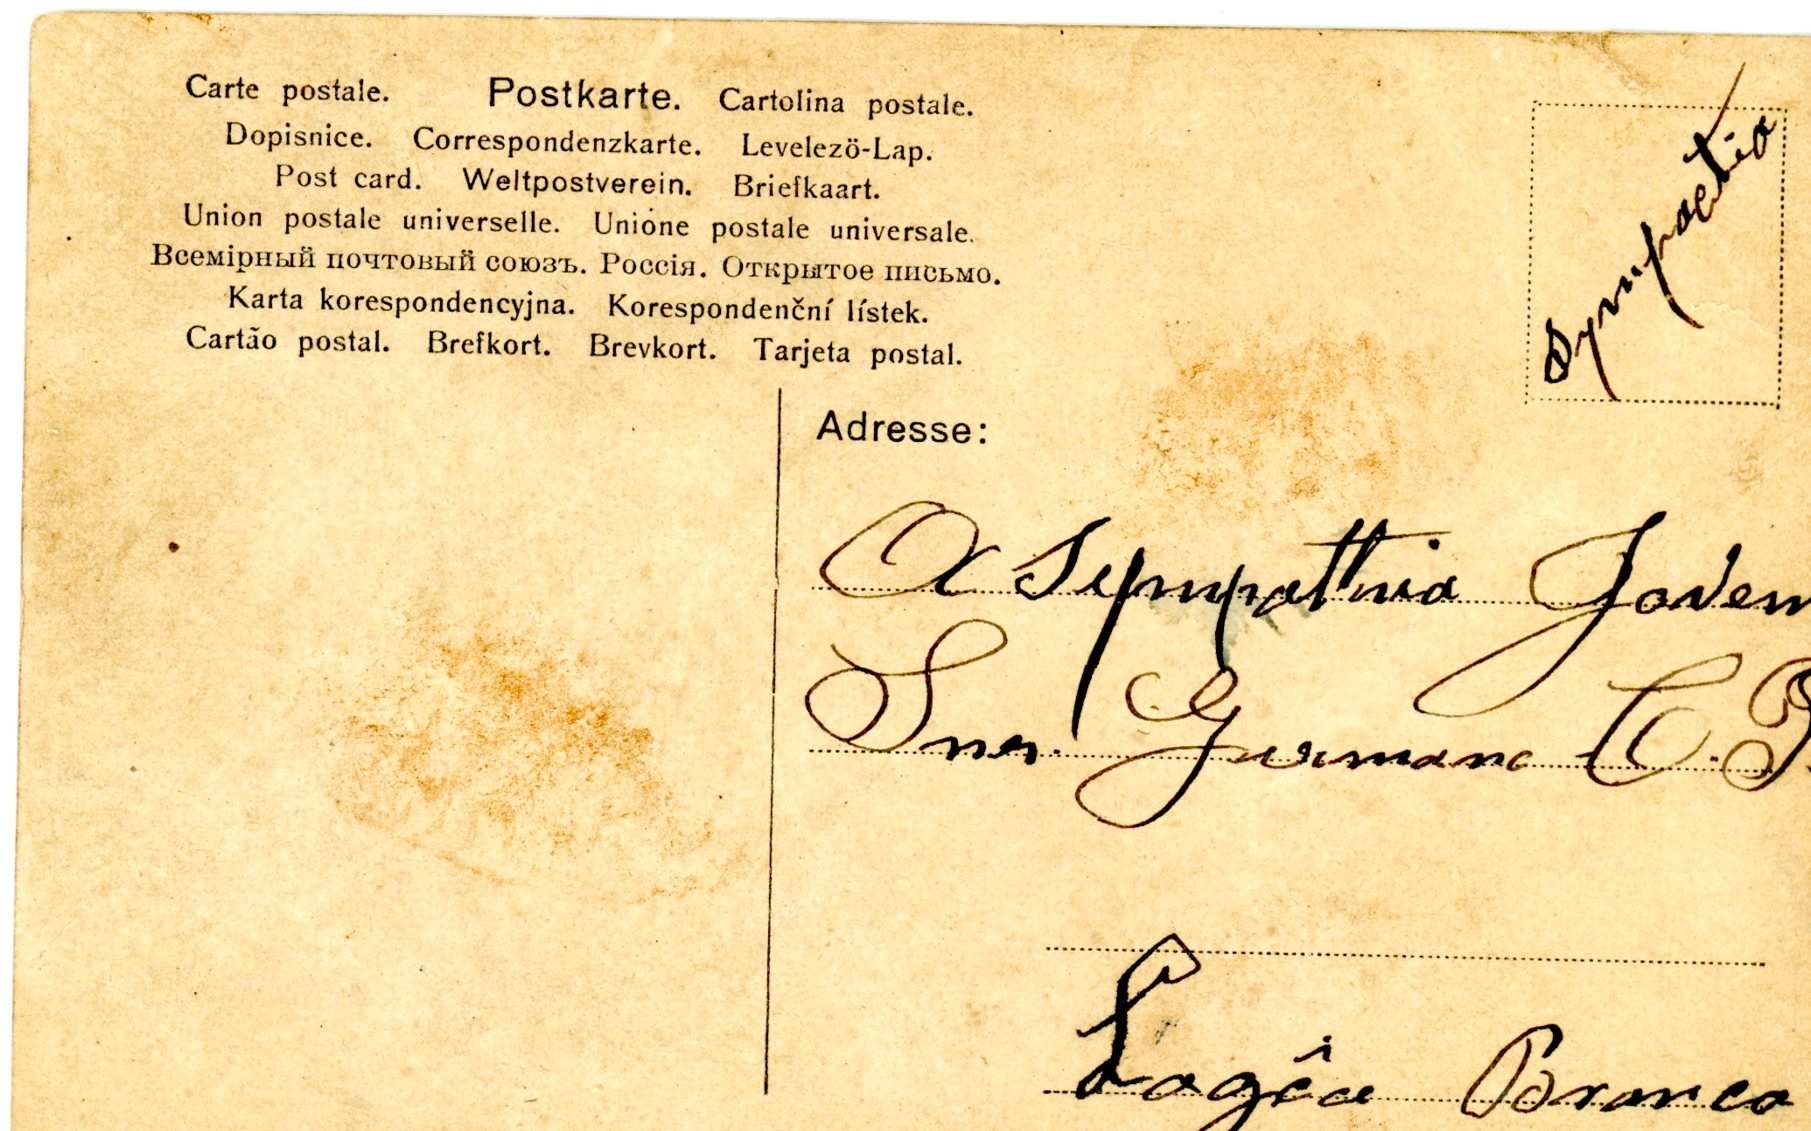 Carte postale. Postkarte. Cartolina postale.
Dopisnice. Correspondenzkarte. Levelezö-Lap.
Post card. Weltpostverein. Briefkaart.
Union postale universelle. Unione postale universale.
Всемірный почтовый союзъ. Россія. Открытое письмо.
Karta korespondencyjna. Korespondenční lístek.
Cartão postal. Brefkort. Brevkort. Tarjeta postal.
Adresse:
A Sympathia Jovem
Snr. C.
Branca